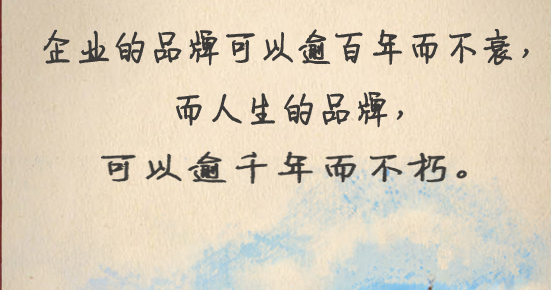 企业的品牌可以逾百年而不衰，
而人生的品牌，
可以逾千年而不朽。